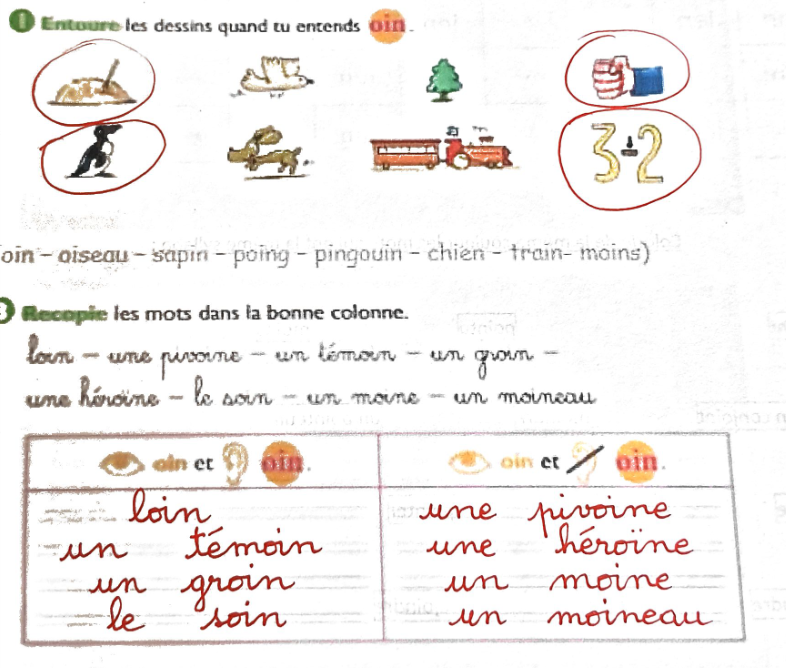 1 Entoure les dessins quand tu entends oin.
3 - 2
oin - oiseau - sapin - poing - pingouin - chien - train- moins)
Recopie les mots dans la bonne colonne.
loin - une pivoine - un témoin - un groin -
une héroïne - le soin - un moine - un moineau
oin et oin. oin et oin.
loin une pivoine
un témoin une héroïne
un groin un moine
le soin un moineau